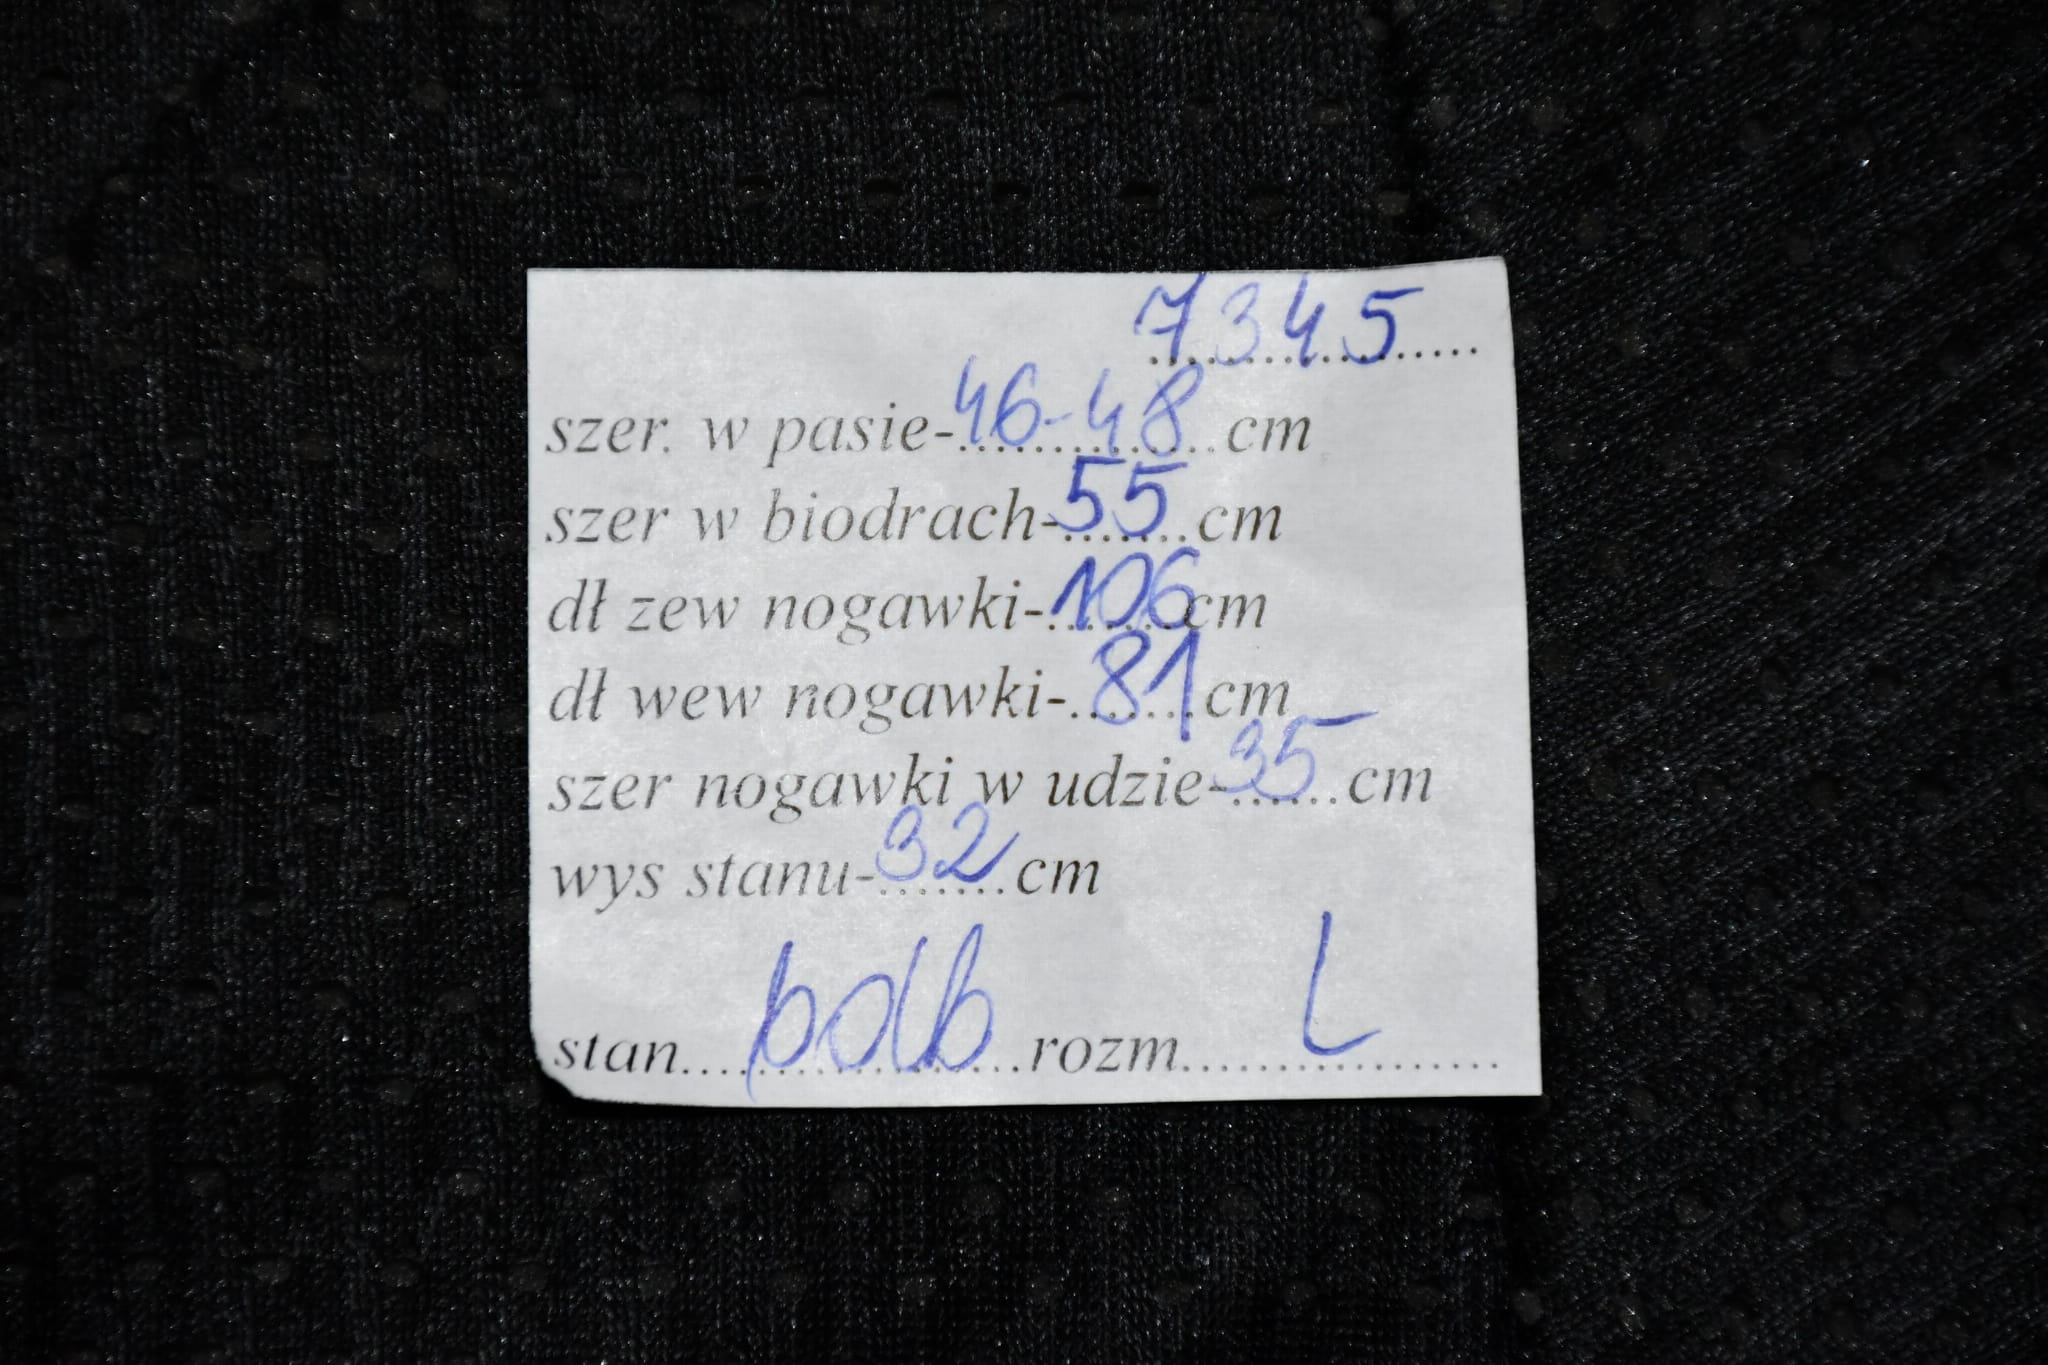 7345
szer. w pasie-46-48 cm
szer w biodrach-55 cm
dł zew nogawki-106 cm
dł wew nogawki-81 cm
szer nogawki w udzie-35 cm
wys stanu-32 cm
stan bdb rozm L